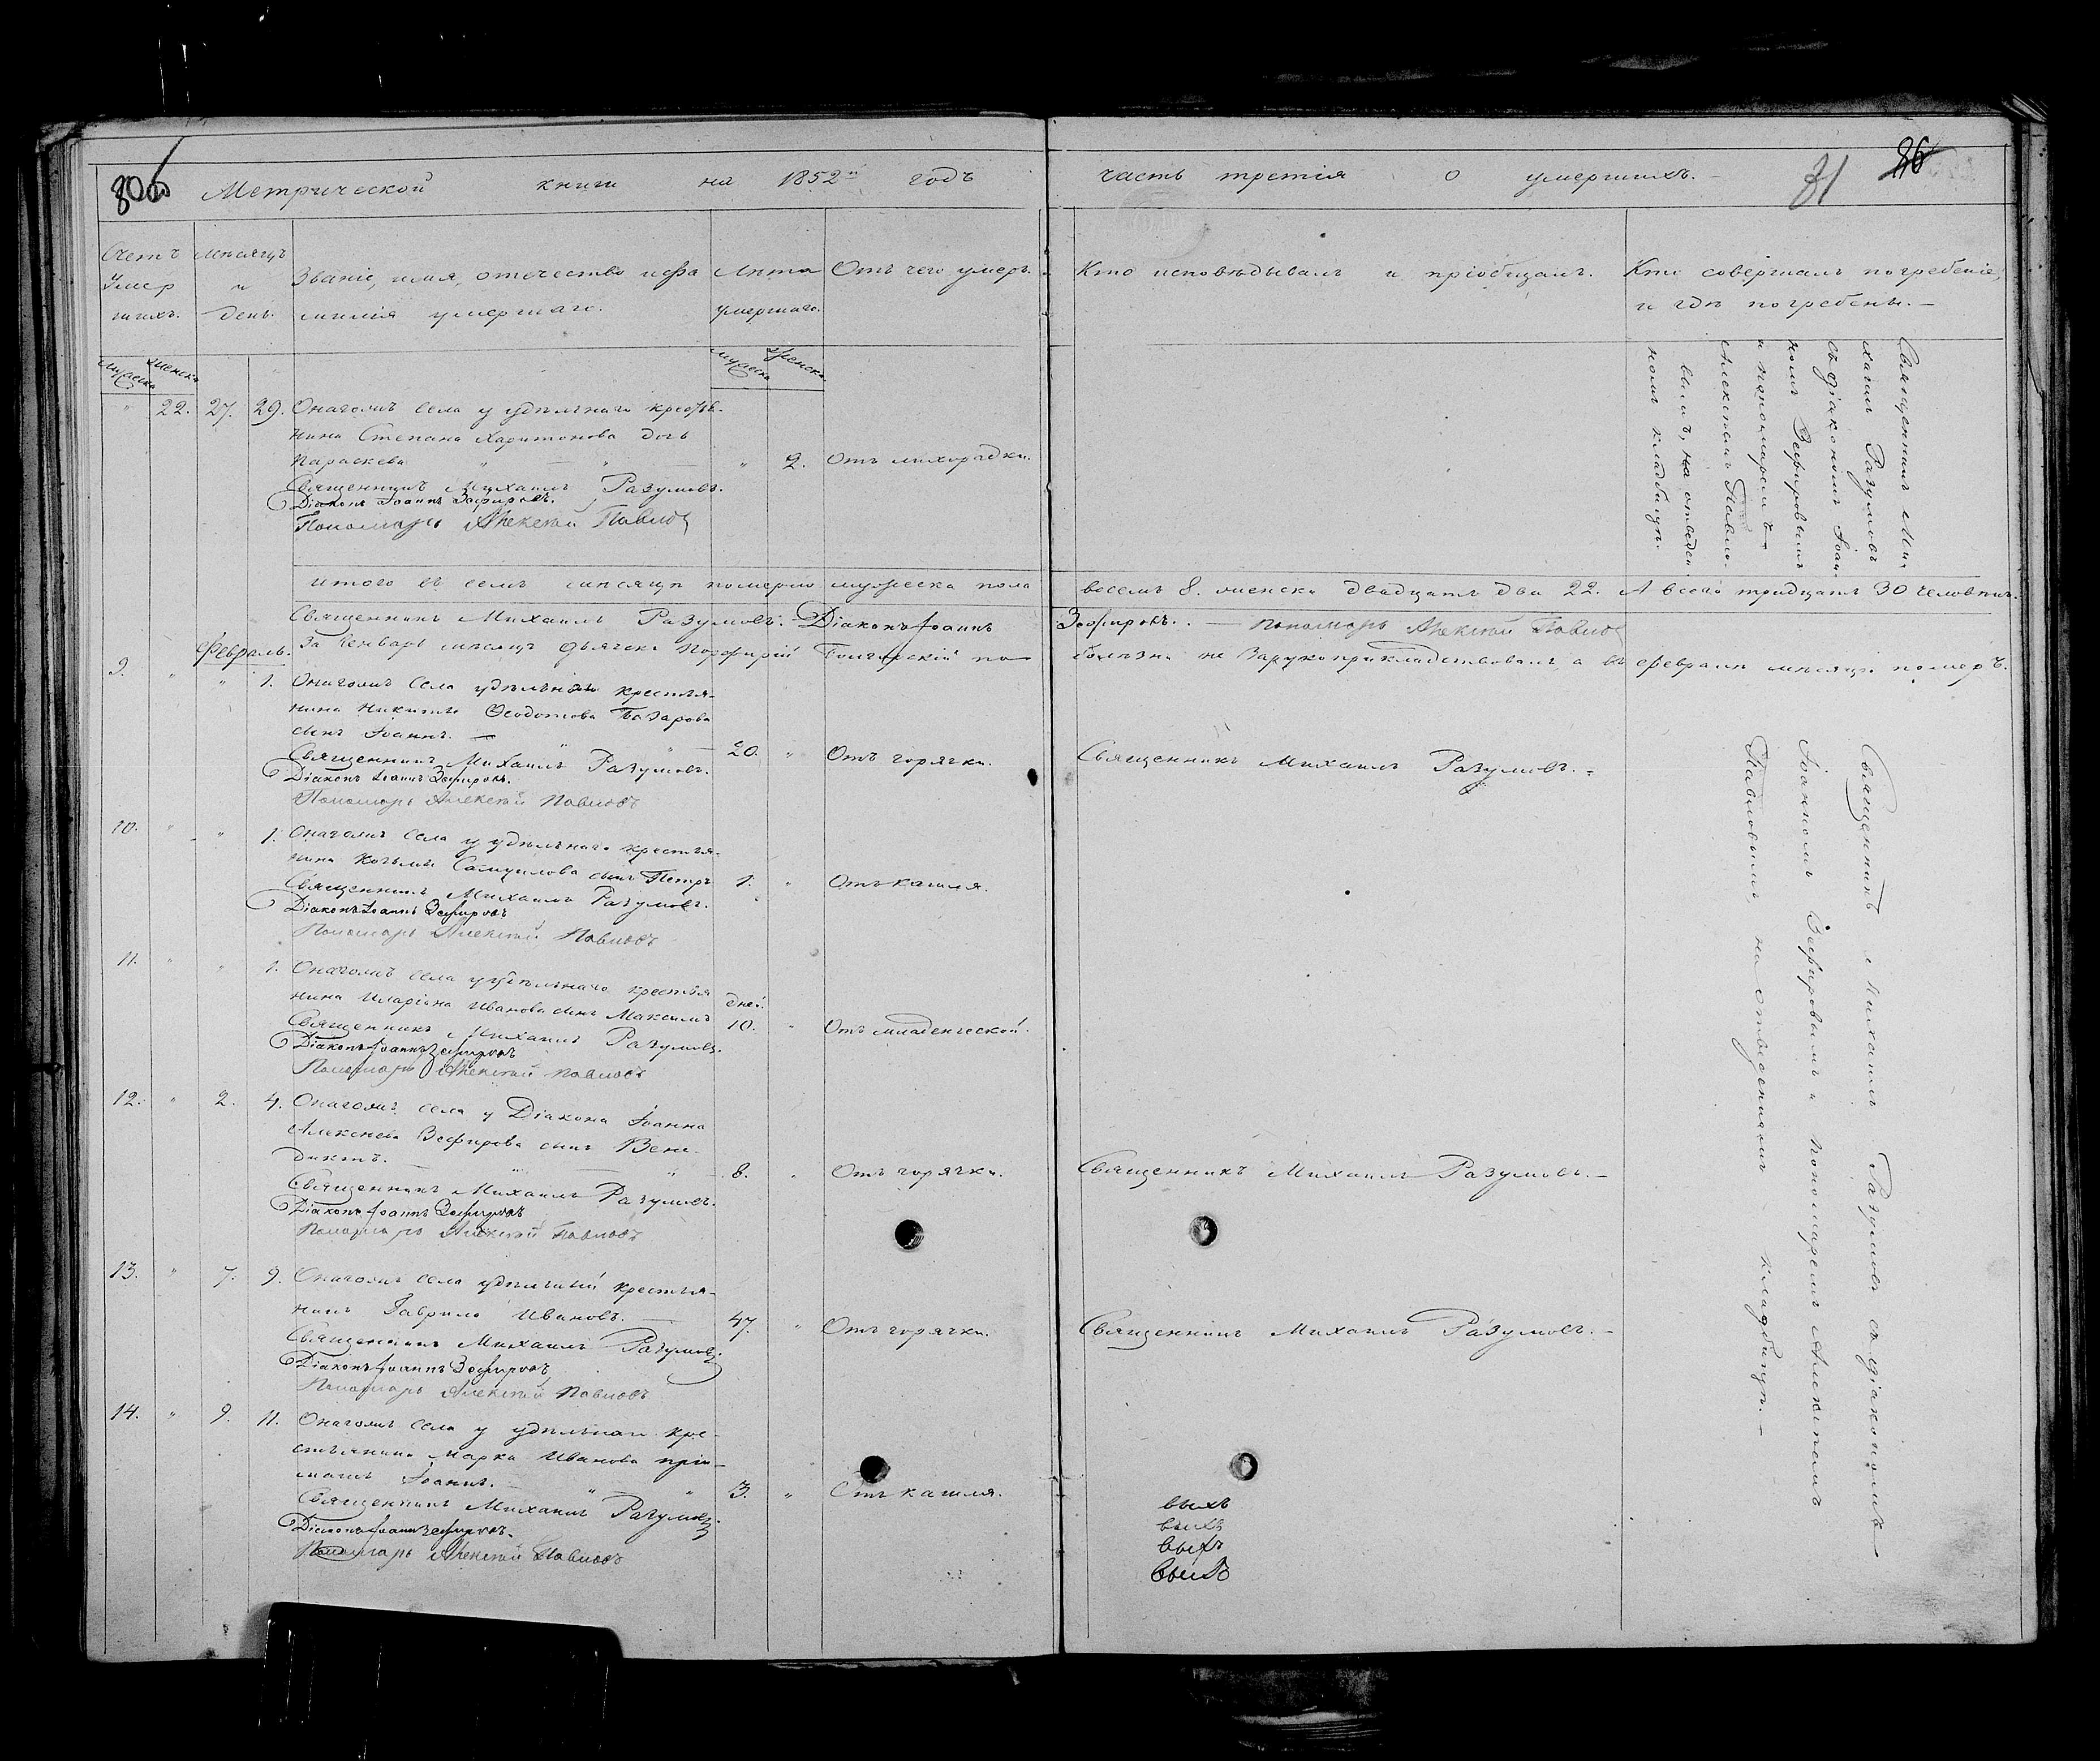 Метрической книги на 1852й годъ
часть третія о умершихъ.
31
86
Счетъ умершихъ.
Мѣсяцъ и день.
Званіе, имя, отечество и фамилія умершаго.
Лѣта умершаго.
Отъ чего умеръ.
Кто исповѣдывалъ и пріобщалъ.
Кто совершалъ погребеніе,
и гдѣ погребены.
мужеска
женска
мужеска
женска
" 22. 27. 29. Онагожъ села у удѣльнаго крестья-
нина Степана Харитонова дочь
Параскева " " " 2. Отъ лихорадки.
Священникъ Михаилъ Разумовъ.
Діаконъ Іоаннъ Зефировъ.
Пономарь Алексѣй Павловъ
Священникъ Ми-
хаилъ Разумовъ
съ діакономъ Іоан-
номъ Зефировымъ
и пономаремъ
Алексѣемъ Павло-
вымъ, на отведен-
номъ кладбищѣ.
Итого въ семъ мѣсяцѣ померло мужеска пола восемь 8. женска двадцать два 22. А всего тридцать 30 человѣкъ.
Священникъ Михаилъ Разумовъ. Діаконъ Іоаннъ Зефировъ. — Пономарь Алексѣй Павловъ
За Генварь мѣсяцъ дьячекъ Порфирій по болѣзни не Зарукоприкладствовалъ, а въ февралѣ мѣсяцѣ померъ.
Февраль.
9. " " 1. Онагожъ села удѣльнаго крестья-
нина Никиты Ѳеодотова Базарова
сынъ Іоаннъ. — " " 20. " Отъ горячки. Священникъ Михаилъ Разумовъ.
Священникъ Михаилъ Разумовъ.
Діаконъ Іоаннъ Зефировъ.
Пономарь Алексѣй Павловъ
10. " " 1. Онагожъ села у удѣльнаго крестья-
нина Козьмы Самуилова сынъ Петръ 1. " Отъ кашля.
Священникъ Михаилъ Разумовъ.
Діаконъ Іоаннъ Зефировъ
Пономарь Алексѣй Павловъ
11. " " 1. Онагожъ села у удѣльнаго крестья
нина Иларіона Иванова сынъ Максимъ дней. 10. " Отъ младенческой.
Священникъ Михаилъ Разумовъ.
Діаконъ Іоаннъ Зефировъ
Пономарь Алексѣй Павловъ
12. " 2. 4. Онагожъ села у Діакона Іоанна
Алексѣева Зефирова сынъ Вене-
диктъ. — " " 8. " Отъ горячки. Священникъ Михаилъ Разумовъ. —
Священникъ Михаилъ Разумовъ.
Діаконъ Іоаннъ Зефировъ
Пономарь Алексѣй Павловъ
13. " 7. 9. Онагожъ села удѣльный крестья-
нинъ Гаврило Ивановъ. — 47. " Отъ горячки. Священникъ Михаилъ Разумовъ. —
Священникъ Михаилъ Разумовъ
Діаконъ Іоаннъ Зефировъ
Пономарь Алексѣй Павловъ
14. " 9. 11. Онагожъ села у удѣльнаго кре-
стьянина Марка Иванова прі-
мышъ Іоаннъ. — " " 3. " Отъ кашля.
Священникъ Михаилъ Разумовъ
Діаконъ Іоаннъ Зефировъ.
Пономарь Алексѣй Павловъ
Священникъ Михаилъ Разумовъ съ діакономъ
Іоанномъ Зефировымъ и пономаремъ Алексѣемъ
Павловымъ, на отведенномъ кладбищѣ. —